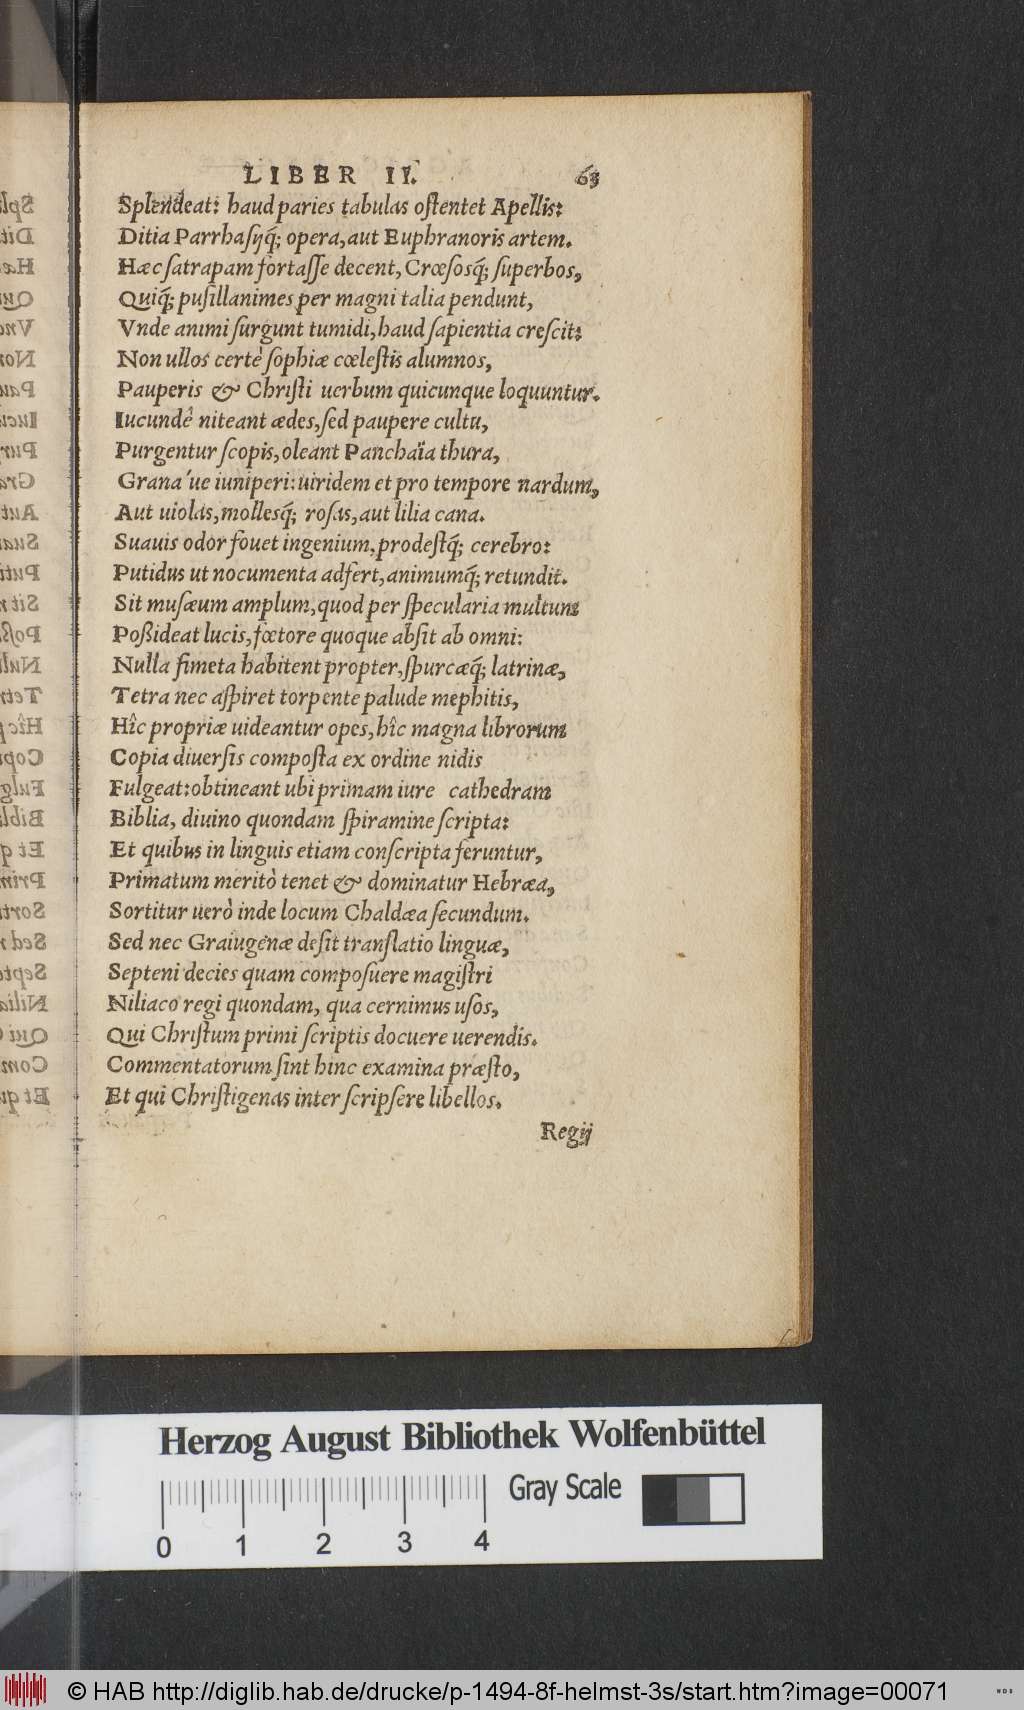 LIBER II. 63
Splendeat: haud paries tabulas ostentet Apellis:
Ditia Parrhasijq́; opera, aut Euphranoris artem.
Hæc satrapam fortasse decent, Crœsosq́; superbos,
Quiq́; pusillanimes per magni talia pendunt,
Vnde animi surgunt tumidi, haud sapientia crescit:
Non ullos certè sophiæ cœlestis alumnos,
Pauperis & Christi uerbum quicunque loquuntur.
Iucundè niteant ædes, sed paupere cultu,
Purgentur scopis, oleant Panchaïa thura,
Grana ́ue iuniperi: uiridem et pro tempore nardum,
Aut uiolas, mollesq́; rosas, aut lilia cana.
Suauis odor fouet ingenium, prodestq́; cerebro:
Putidus ut nocumenta adfert, animumq́; retundit.
Sit musæum amplum, quod per specularia multum
Poßideat lucis, fœtore quoque absit ab omni:
Nulla fimeta habitent propter, spurcæq́; latrinæ,
Tetra nec aspiret torpente palude mephitis,
Hîc propriæ uideantur opes, hîc magna librorum
Copia diuersis composta ex ordine nidis
Fulgeat: obtineant ubi primam iure cathedram
Biblia, diuino quondam spiramine scripta:
Et quibus in linguis etiam conscripta feruntur,
Primatum meritò tenet & dominatur Hebræa,
Sortitur uerò inde locum Chaldæa secundum.
Sed nec Graiugenæ desit translatio linguæ,
Septeni decies quam composuere magistri
Niliaco regi quondam, qua cernimus usos,
Qui Christum primi scriptis docuere uerendis.
Commentatorum sint hinc examina præsto,
Et qui Christigenas inter scripsere libellos.
Regij
Herzog August Bibliothek Wolfenbüttel
0 1 2 3 4
Gray Scale
© HAB http://diglib.hab.de/drucke/p-1494-8f-helmst-3s/start.htm?image=00071